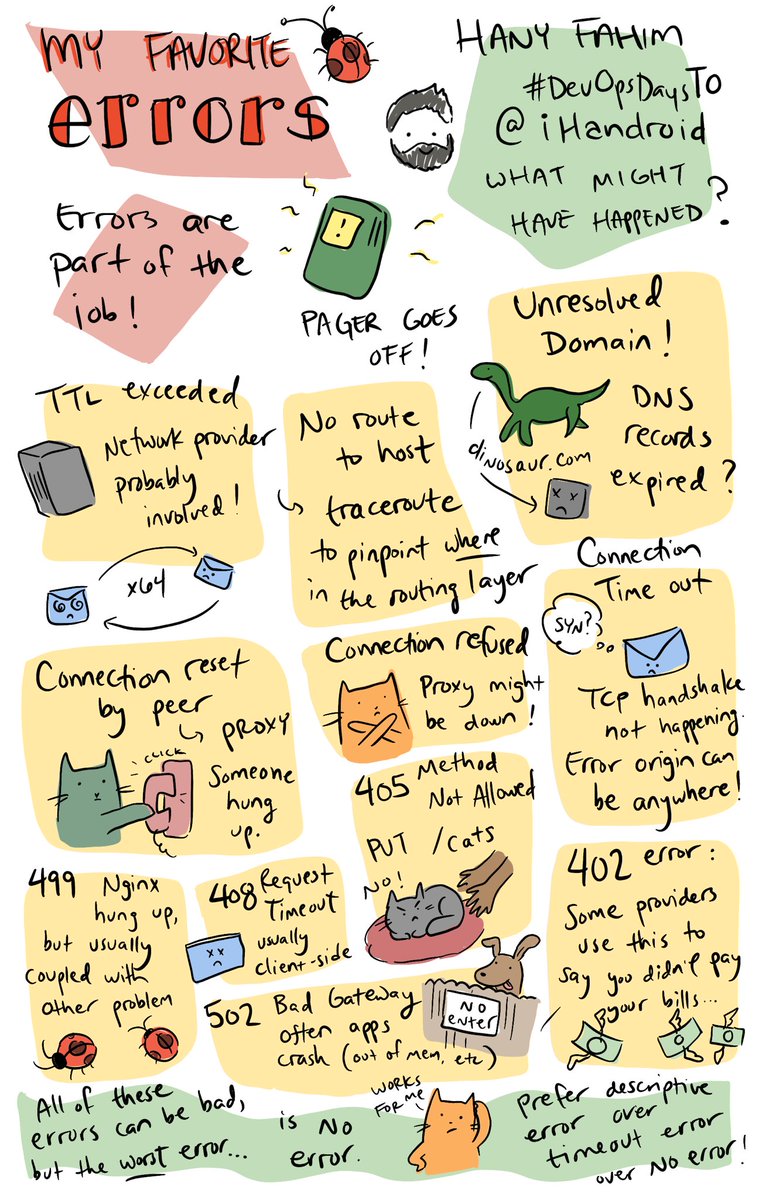 My Favorite
errors
Hany Fahim
#DevOpsDaysTO
@iHandroid
What might
have happened?
Errors are
part of the
job!
!
Pager goes
off!
Unresolved
Domain!
dinosaur.com
DNS
records
expired?
TTL exceeded
Network provider
probably
involved!
x64
No route
to host
traceroute
to pinpoint where
in the routing layer
Connection
Time out
SYN?
TCP handshake
not happening.
Error origin can
be anywhere!
Connection reset
by peer
proxy
click
Someone
hung
up.
Connection refused
Proxy might
be down!
405 Method
Not Allowed
PUT /cats
NO!
499 Nginx
hung up,
but usually
coupled with
other problem
408 Request
Timeout
usually
client-side
502 Bad Gateway
often apps
crash (out of mem, etc)
NO
enter
402 error:
Some providers
use this to
say you didn't pay
your bills...
All of these
errors can be bad,
but the worst error...
is NO
error.
works
for me
Prefer descriptive
error over
timeout error
over NO error!